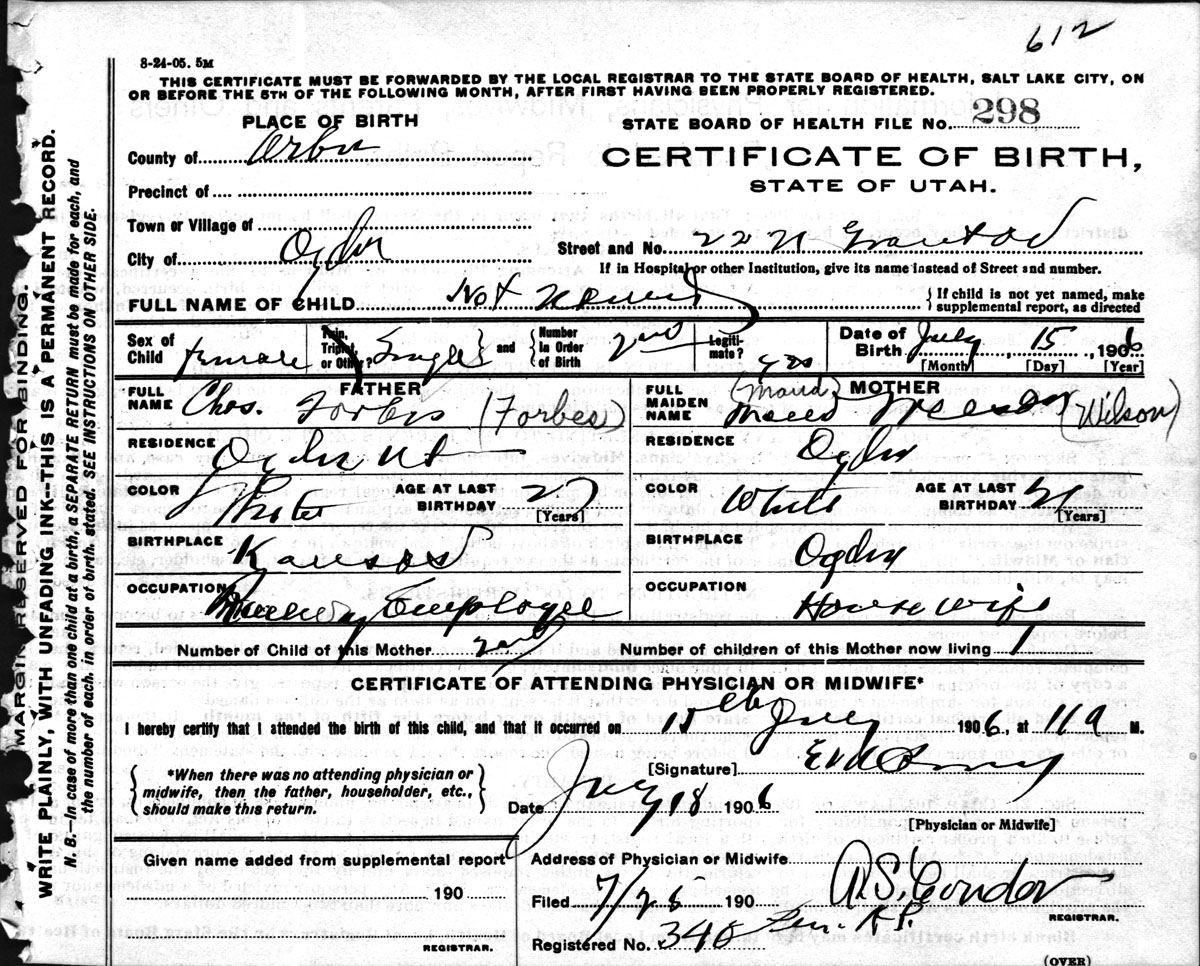 612
8-24-05. 5M
THIS CERTIFICATE MUST BE FORWARDED BY THE LOCAL REGISTRAR TO THE STATE BOARD OF HEALTH, SALT LAKE CITY, ON
OR BEFORE THE 5TH OF THE FOLLOWING MONTH, AFTER FIRST HAVING BEEN PROPERLY REGISTERED.
PLACE OF BIRTH
STATE BOARD OF HEALTH FILE No. 298
County of
CERTIFICATE OF BIRTH,
STATE OF UTAH.
Precinct of
Town or Village of
City of Ogden
Street and No. 22
If in Hospital or other Institution, give its name instead of Street and number.
FULL NAME OF CHILD Not named
{ If child is not yet named, make
supplemental report, as directed
Sex of Child female
Twin, Triplet, or Other? Single and Number in Order of Birth 2nd
Legitimate? yes
Date of Birth July 15, 1906
[Month] [Day] [Year]
FATHER
FULL NAME Chas. Forbes (Forbes)
MOTHER
FULL MAIDEN NAME (Maud) Maud (Wilson)
RESIDENCE Ogden Ut
RESIDENCE Ogden
COLOR White AGE AT LAST BIRTHDAY 27 [Years]
COLOR White AGE AT LAST BIRTHDAY [Years]
BIRTHPLACE Kansas
BIRTHPLACE Ogden
OCCUPATION Railway Employee
OCCUPATION Housewife
Number of Child of this Mother 2nd
Number of children of this Mother now living 1
CERTIFICATE OF ATTENDING PHYSICIAN OR MIDWIFE*
I hereby certify that I attended the birth of this child, and that it occurred on 15th July 1906, at 11 a M.
{ *When there was no attending physician or
midwife, then the father, householder, etc.,
should make this return. }
[Signature]
Date July 18 1906
[Physician or Midwife]
Given name added from supplemental report
190
REGISTRAR.
Address of Physician or Midwife
Filed 7/25 190 A.S. Condon
REGISTRAR.
Registered No. 348
(OVER)
MARGIN RESERVED FOR BINDING.
WRITE PLAINLY, WITH UNFADING INK—THIS IS A PERMANENT RECORD.
N. B.—In case of more than one child at a birth, a SEPARATE RETURN must be made for each, and
the number of each, in order of birth, stated. SEE INSTRUCTIONS ON OTHER SIDE.